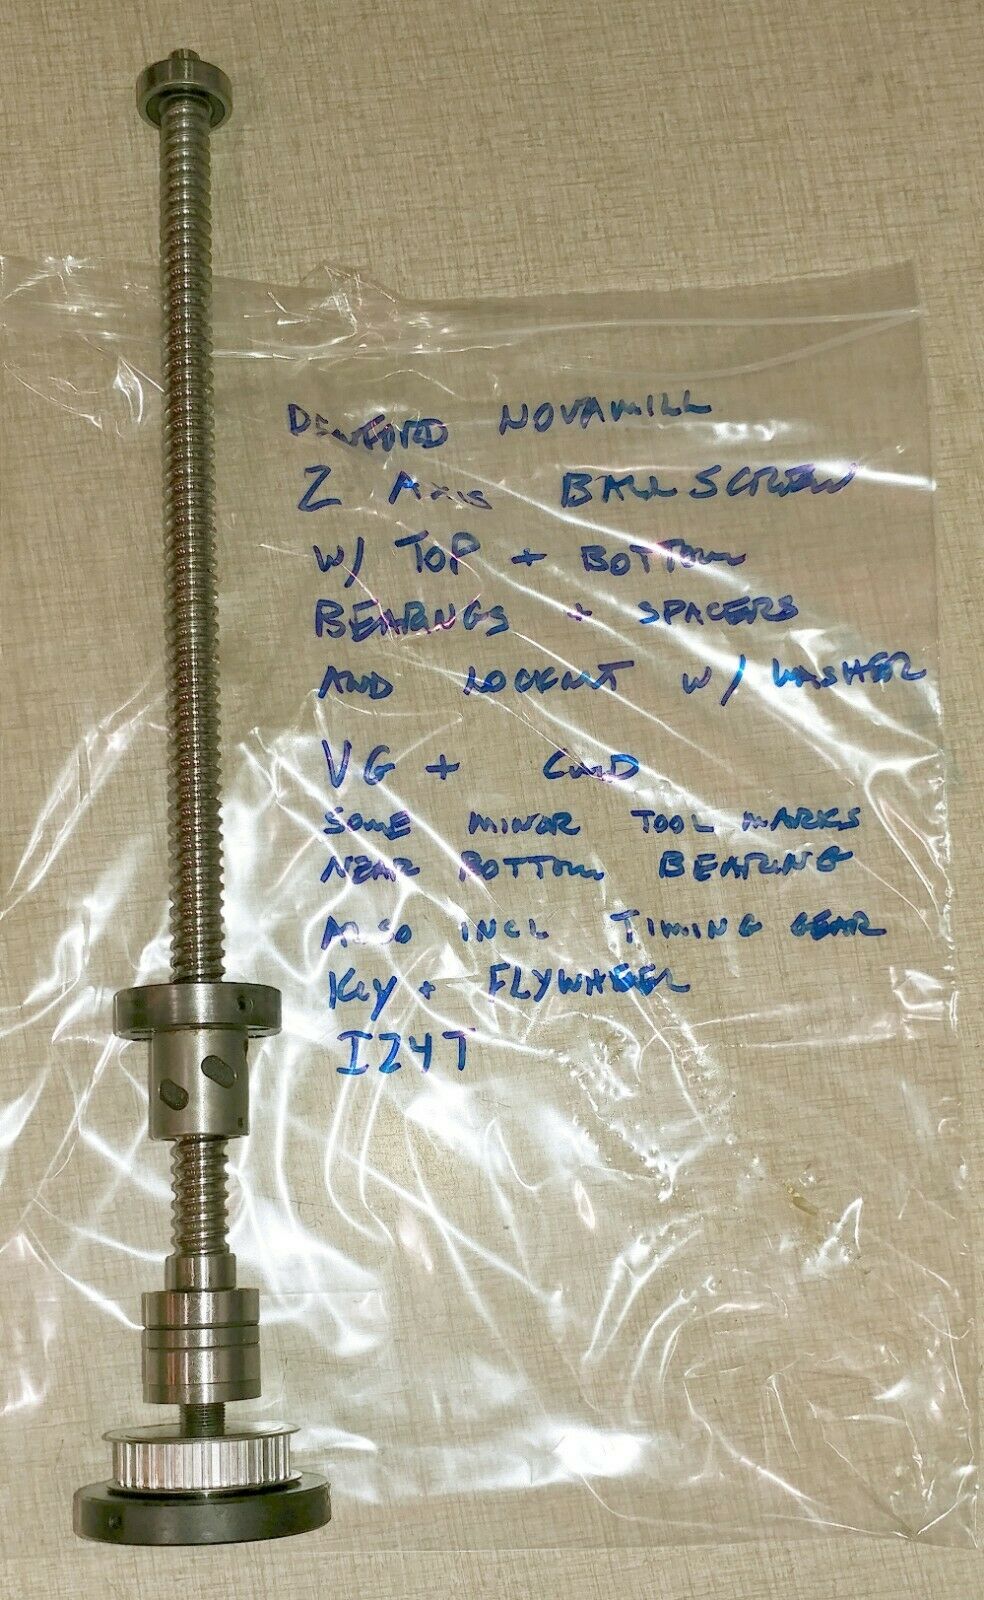 DENFORD NOVAMILL
Z AXIS BALLSCREW
W/ TOP + BOTTOM
BEARINGS + SPACERS
AND LOCKNUT W/ WASHER
VG + COND
SOME MINOR TOOL MARKS
NEAR BOTTOM BEARING
ALSO INCL TIMING GEAR
KEY + FLYWHEEL
I24T